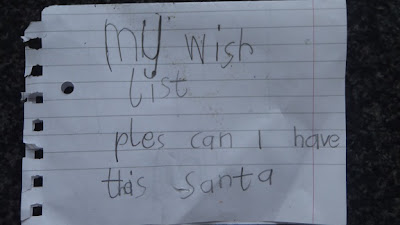 my wish
list
ples can I have
this santa